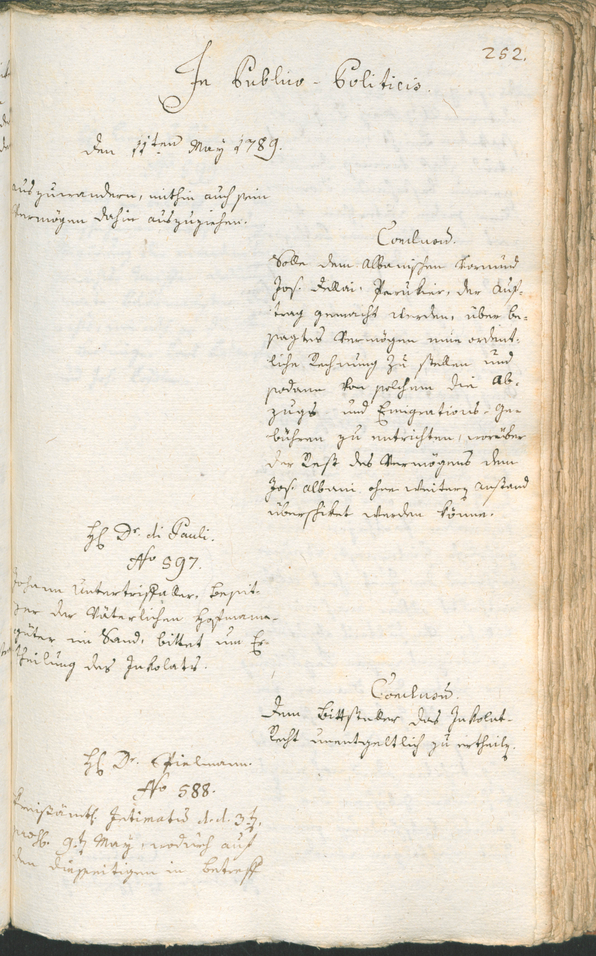 252.
In Publico-Politicis.
den 11ten May 1789.
auszuwandern, mithin auch sein
Vermögen dahin auszuziehen.
Conclusum.
Solle dem Albanischen Vormund
Jos. Dallai, Perükier, der Auf-
trag gemacht werden, über be-
sagtes Vermögen eine ordent-
liche Rechnung zu stellen und
sodann von solchem die Ab-
zugs und Emigrations-Ge-
bühren zu entrichten, worüber
der Rest des Vermögens dem
Jos. Albani ohne weiters Anstand
überschiket werden könne.
H. Dr. di Pauli.
No 597.
Johann Untertrifaller, besit-
zer der Väterlichen Hofmanns-
güter im Sand, bittet um Er-
theilung des Inkolats.
Conclusum.
Dem Bittsteller das Inkolat-
Recht unentgeltlich zu ertheilen.
H. Dr. Spielmann.
No 588.
Kreisämtl. Intimatum d. d. 3t,
9t May, wodurch auf
den diesseitigen in betreff